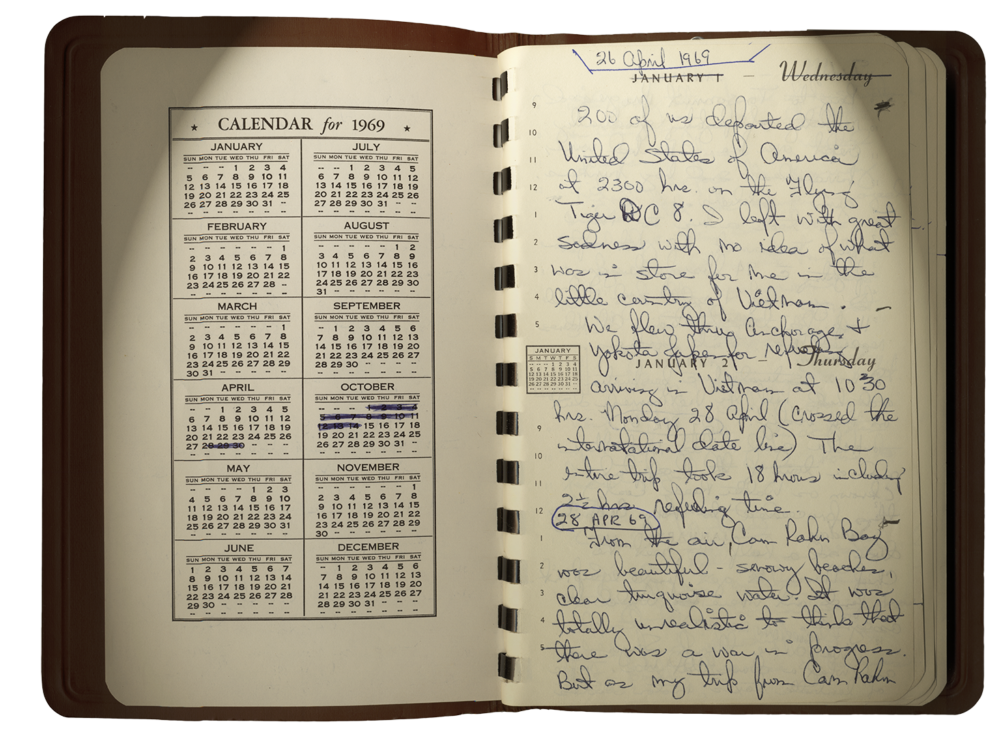 ★ CALENDAR for 1969 ★
JANUARY
SUN MON TUE WED THU FRI SAT
-- -- -- 1 2 3 4
5 6 7 8 9 10 11
12 13 14 15 16 17 18
19 20 21 22 23 24 25
26 27 28 29 30 31 --
JULY
SUN MON TUE WED THU FRI SAT
-- -- 1 2 3 4 5
6 7 8 9 10 11 12
13 14 15 16 17 18 19
20 21 22 23 24 25 26
27 28 29 30 31 -- --
FEBRUARY
SUN MON TUE WED THU FRI SAT
-- -- -- -- -- -- 1
2 3 4 5 6 7 8
9 10 11 12 13 14 15
16 17 18 19 20 21 22
23 24 25 26 27 28 --
AUGUST
SUN MON TUE WED THU FRI SAT
-- -- -- -- -- 1 2
3 4 5 6 7 8 9
10 11 12 13 14 15 16
17 18 19 20 21 22 23
24 25 26 27 28 29 30
31 -- -- -- -- -- --
MARCH
SUN MON TUE WED THU FRI SAT
-- -- -- -- -- -- 1
2 3 4 5 6 7 8
9 10 11 12 13 14 15
16 17 18 19 20 21 22
23 24 25 26 27 28 29
30 31 -- -- -- -- --
SEPTEMBER
SUN MON TUE WED THU FRI SAT
-- 1 2 3 4 5 6
7 8 9 10 11 12 13
14 15 16 17 18 19 20
21 22 23 24 25 26 27
28 29 30 -- -- -- --
APRIL
SUN MON TUE WED THU FRI SAT
-- -- 1 2 3 4 5
6 7 8 9 10 11 12
13 14 15 16 17 18 19
20 21 22 23 24 25 26
27 28 29 30 -- -- --
OCTOBER
SUN MON TUE WED THU FRI SAT
-- -- -- 1 2 3 4
5 6 7 8 9 10 11
12 13 14 15 16 17 18
19 20 21 22 23 24 25
26 27 28 29 30 31 --
MAY
SUN MON TUE WED THU FRI SAT
-- -- -- -- 1 2 3
4 5 6 7 8 9 10
11 12 13 14 15 16 17
18 19 20 21 22 23 24
25 26 27 28 29 30 31
NOVEMBER
SUN MON TUE WED THU FRI SAT
-- -- -- -- -- -- 1
2 3 4 5 6 7 8
9 10 11 12 13 14 15
16 17 18 19 20 21 22
23 24 25 26 27 28 29
30 -- -- -- -- -- --
JUNE
SUN MON TUE WED THU FRI SAT
1 2 3 4 5 6 7
8 9 10 11 12 13 14
15 16 17 18 19 20 21
22 23 24 25 26 27 28
29 30 -- -- -- -- --
DECEMBER
SUN MON TUE WED THU FRI SAT
-- 1 2 3 4 5 6
7 8 9 10 11 12 13
14 15 16 17 18 19 20
21 22 23 24 25 26 27
28 29 30 31 -- -- --
26 April 1969
JANUARY 1 — Wednesday
9
200 of us departed the
10
United States of America
11
at 2300 hrs. on the Flying
12
Tiger DC 8. I left with great
1
sadness with no idea of what
2
was in store for me in the
3
little country of Vietnam.
4
We flew thru Anchorage, &
5
Yokota Japan for refueling
JANUARY 2 Thursday
JANUARY
S M T W T F S
1 2 3 4
5 6 7 8 9 10 11
12 13 14 15 16 17 18
19 20 21 22 23 24 25
26 27 28 29 30 31
arriving in Vietnam at 1030
hrs. Monday 28 April (crossed the
9
international date line) The
10
entire trip took 18 hours including
11
2½ hrs refueling time.
12
28 APR 69
1
From the air, Cam Rahn Bay
2
was beautiful - snowy beaches,
3
clear turquoise water. It was
4
totally unrealistic to think that
5
there was a war in progress.
But as my trip from Cam Rahn